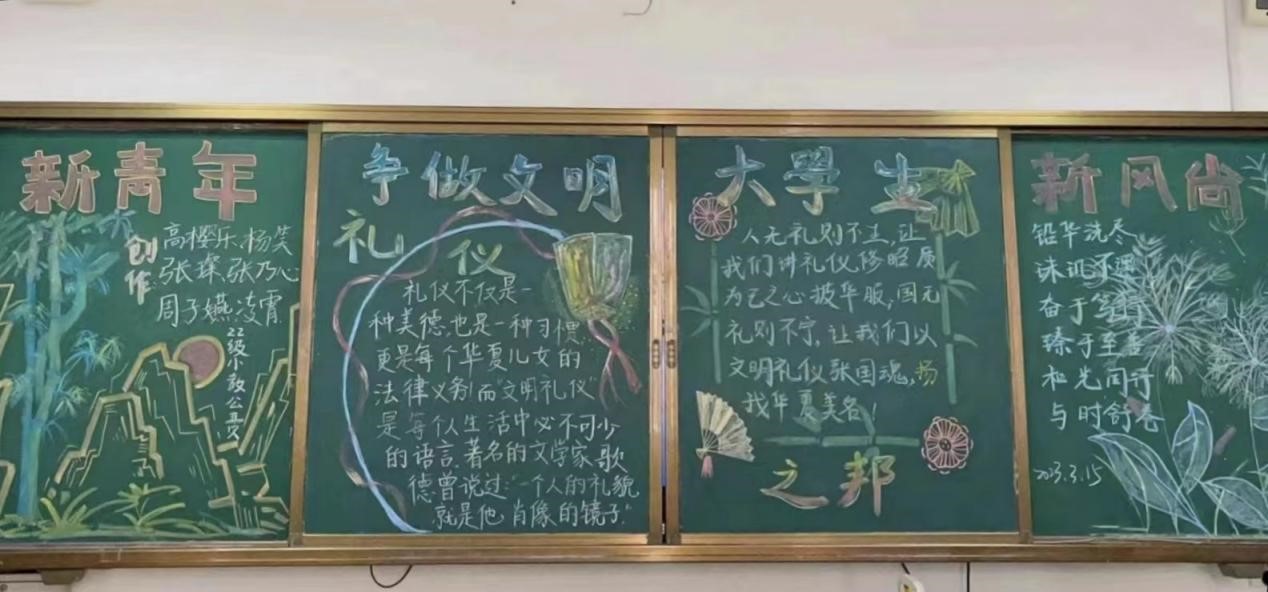 新青年
创作
高樱乐.杨笑
张璨.张乃心
周子嬿.凌霄
22级小教公费
争做文明
礼仪
礼仪不仅是一
种美德,也是一种习惯
更是每个华夏儿女的
法律义务!而"文明礼仪"
是每个人生活中必不可少
的语言.著名的文学家歌
德曾说过:"一个人的礼貌
就是他肖像的镜子."
大学生
人无礼则不立,让
我们讲礼仪修昭质
为艺之心披华服,国无
礼则不宁,让我们以
文明礼仪张国魂,扬
我华夏美名!
之邦
新风尚
铅华洗尽
奋于
臻于至善
和光同行
与时舒卷